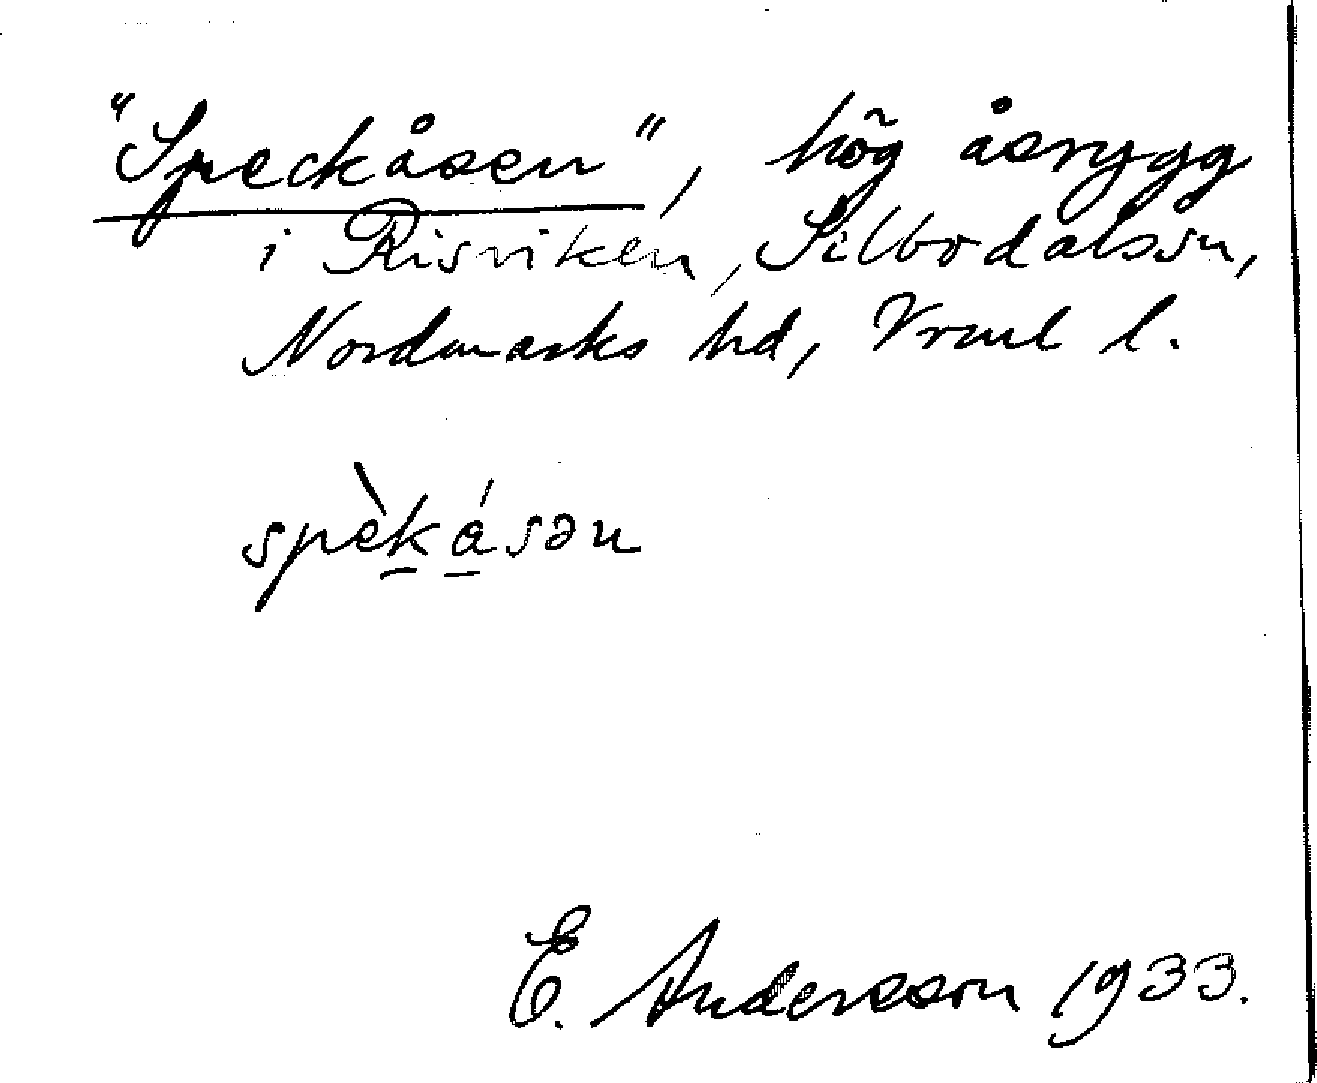 "Speckåsen", hög åsrygg
i Risviken, Silbodalssn,
Nordmarks hd, Vrml l.
spèk̲á̲sən
E. Andersson 1933.